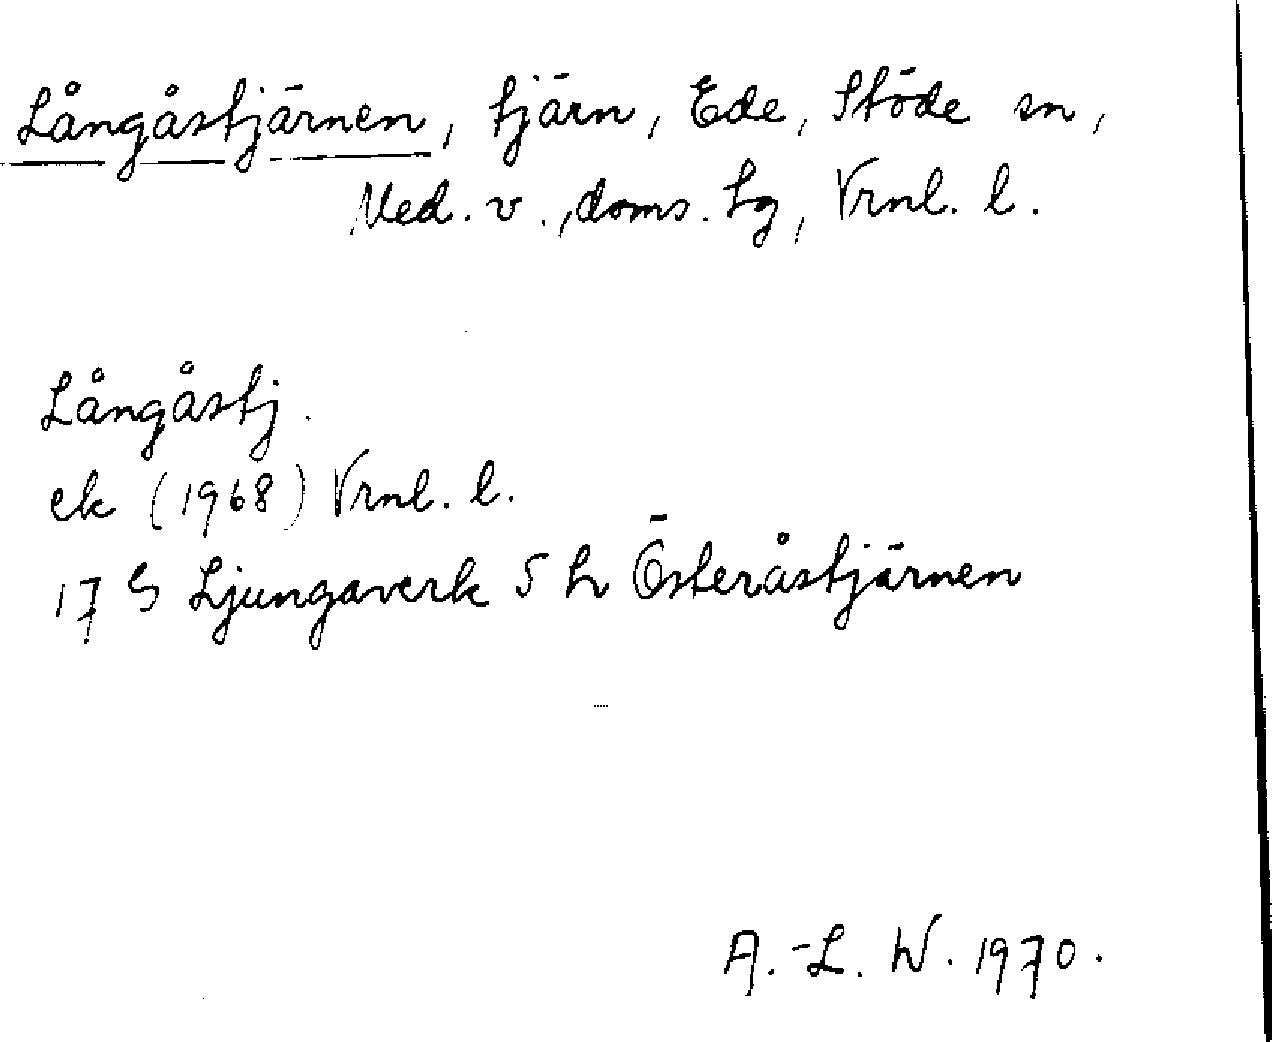 Långåstjärnen, tjärn, Ede, Stöde sn,
Med. v., doms. hg, Vrnl. l.
Långåstj.
ek (1968) Vrnl. l.
17 G Ljungaverk 5 h Österåstjärnen
A.-L. W. 1970.